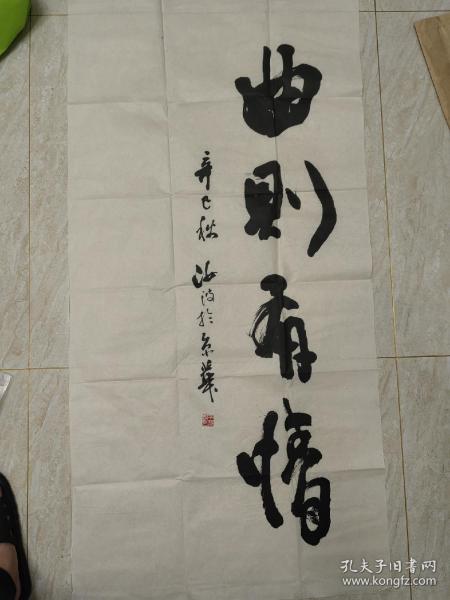 曲则有情
辛巳秋 汝波於京华
孔夫子旧书网
www.kongfz.com